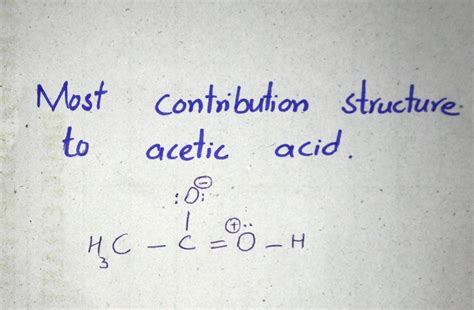 Most contribution structure
to acetic acid.
:Ö:⊖
|
H₃C – C = Ö⊕ – H